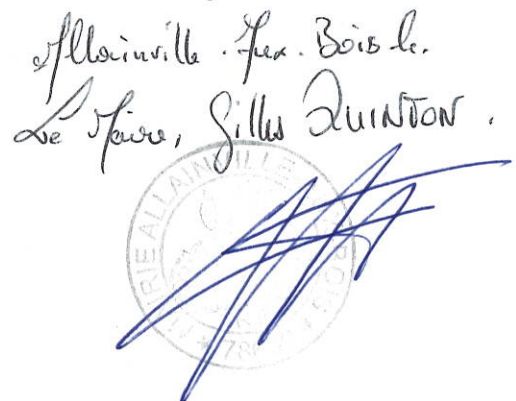 Allainville. Aux. Bois le.
Le Maire, Gilles QUINTON.
MAIRIE ALLAINVILLE
78